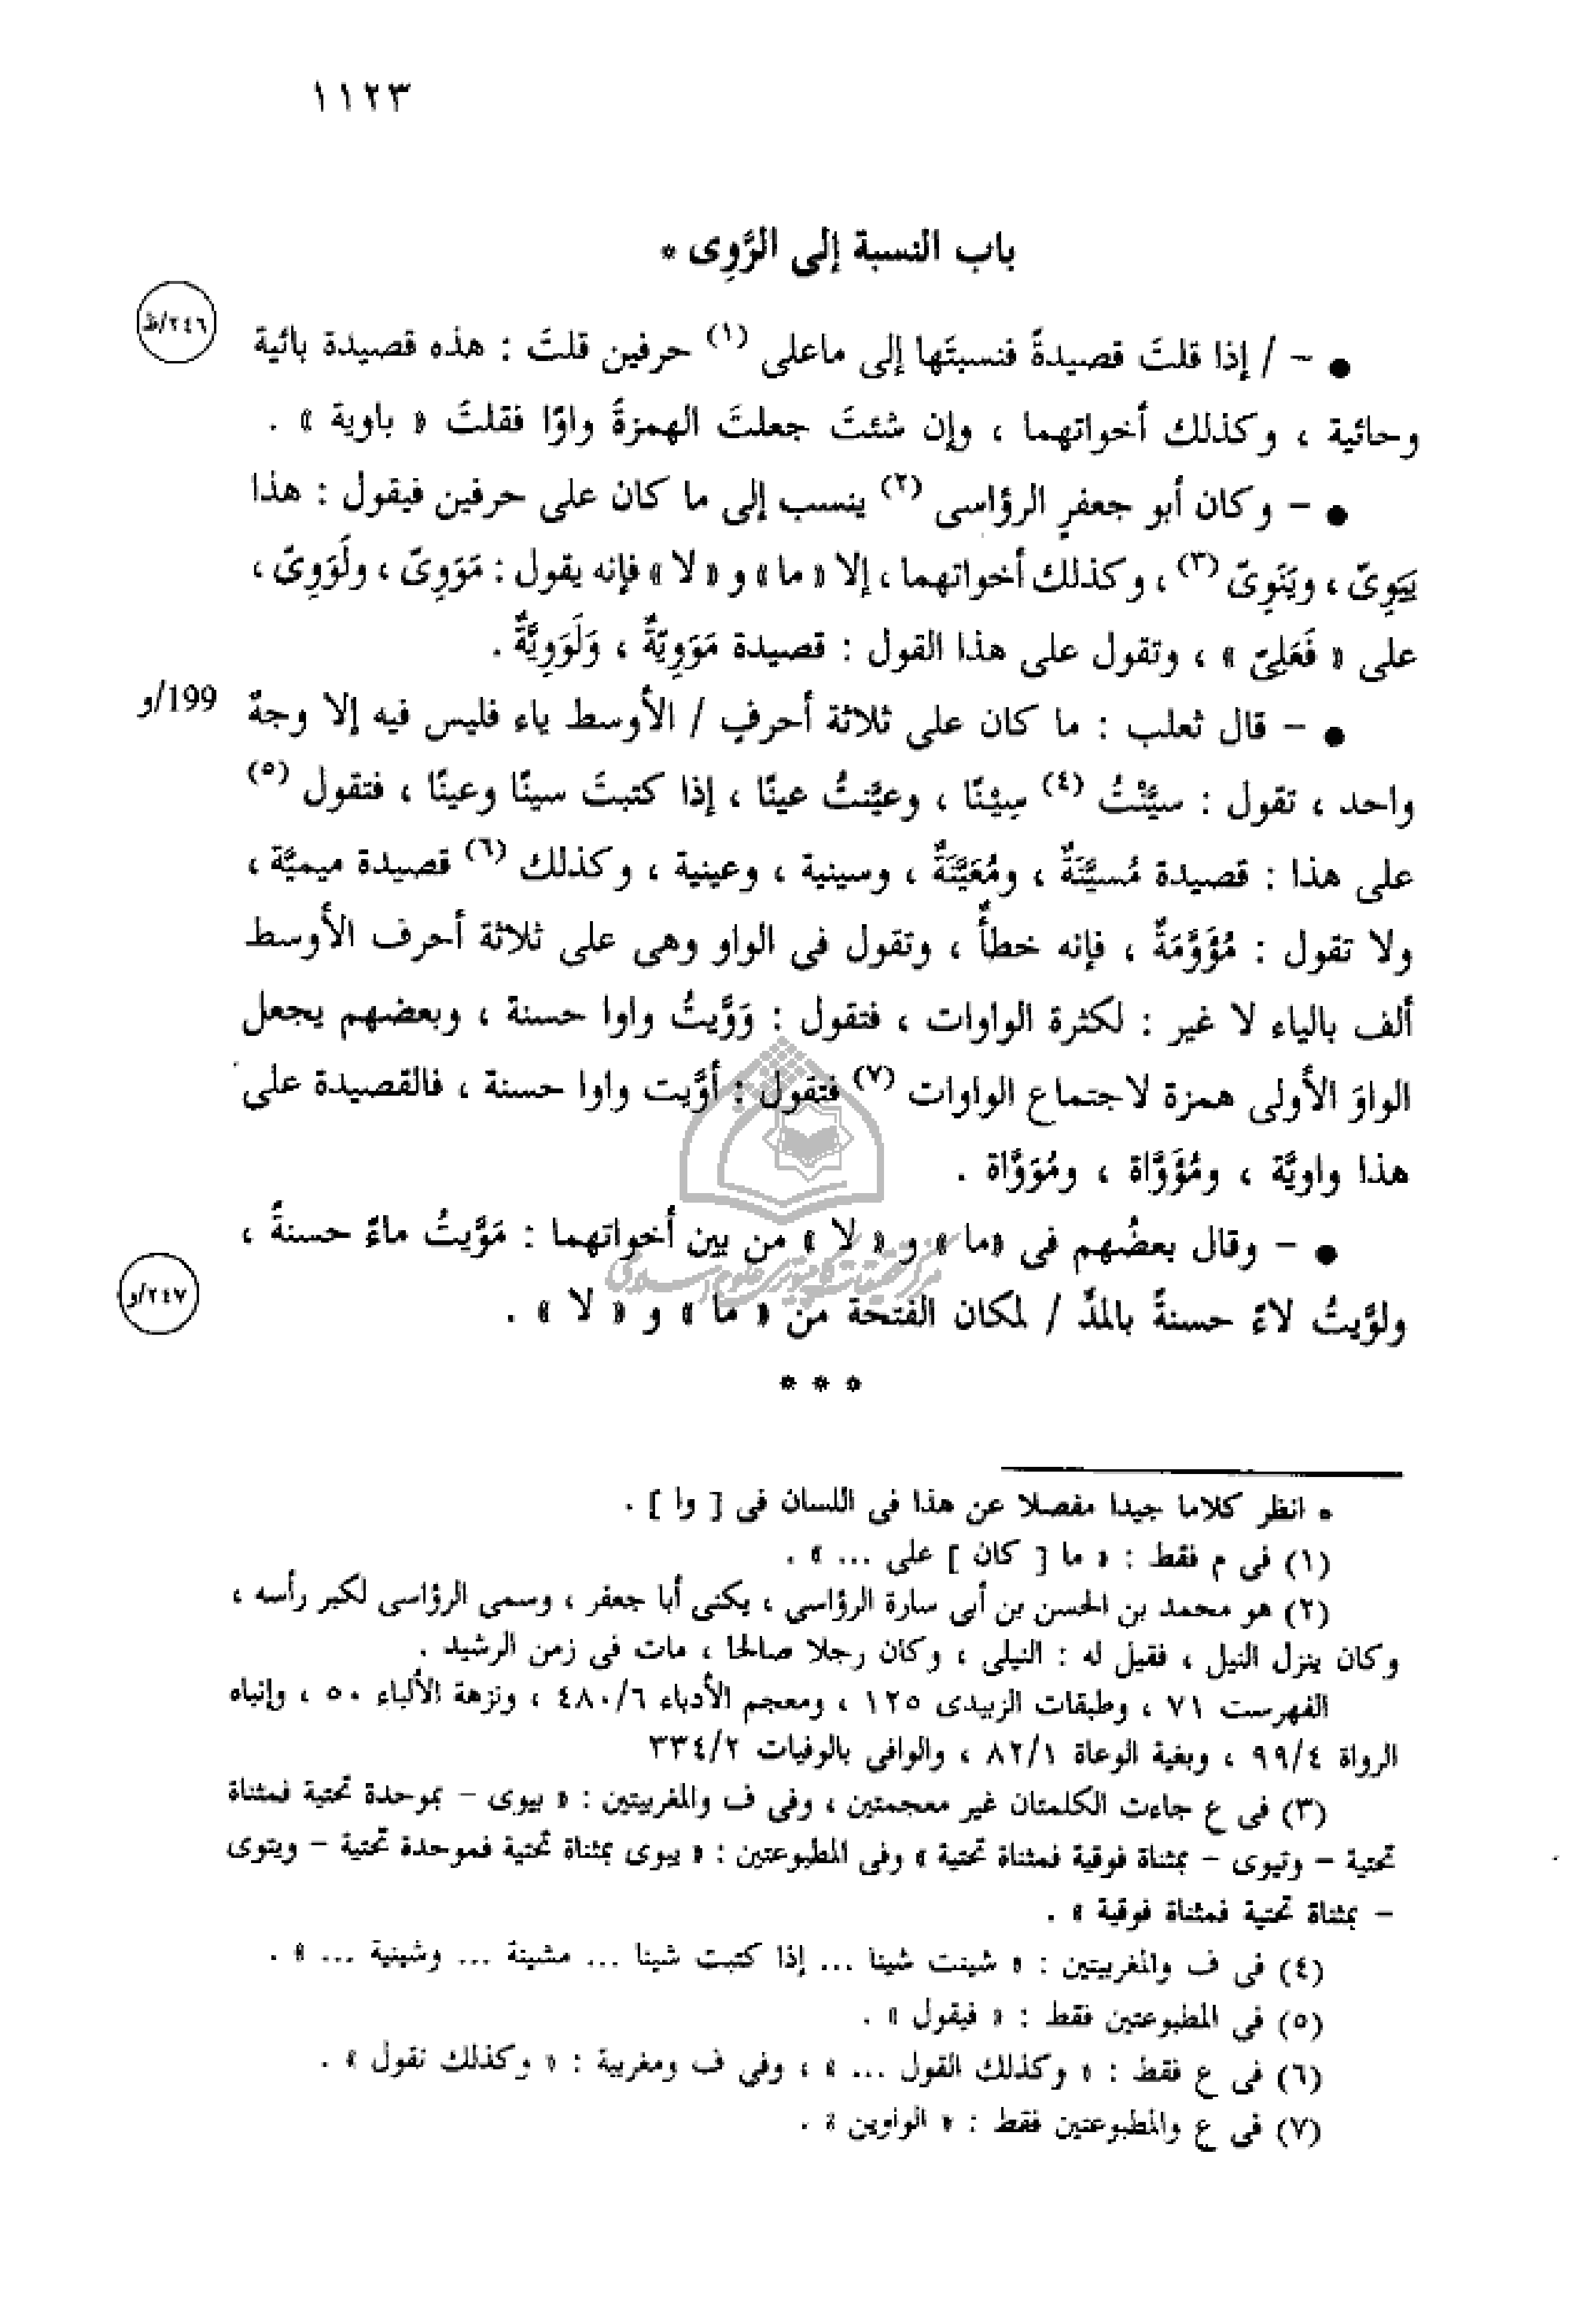 ١١٢٣
باب النسبة إلى الرَّوِى *
٢٤٦/ظ
● – / إذا قلتَ قصيدةً فنسبتَها إلى ماعلى (١) حرفين قلتَ : هذه قصيدة بائية
وحائية ، وكذلك أخواتهما ، وإن شئتَ جعلتَ الهمزةَ واوًا فقلتَ « باوية » .
● – وكان أبو جعفرٍ الرؤاسى (٢) ينسب إلى ما كان على حرفين فيقول : هذا
يَيَوِىّ ، ويَنَوِىّ (٣) ، وكذلك أخواتهما ، إلا « ما » و « لا » فإنه يقول : مَوَوِىّ ، ولَوَوِىّ ،
على « فَعَلِىّ » ، وتقول على هذا القول : قصيدة مَوَوِيّةٌ ، وَلَوَوِيَّةٌ .
199/و
● – قال ثعلب : ما كان على ثلاثة أحرفٍ / الأوسط ياء فليس فيه إلا وجهٌ
واحد ، تقول : سيَّنْتُ (٤) سِيْنًا ، وعيَّنتُ عينًا ، إذا كتبتَ سينًا وعينًا ، فتقول (٥)
على هذا : قصيدة مُسيَّنَةٌ ، ومُعَيَّنَةٌ ، وسينية ، وعينية ، وكذلك (٦) قصيدة ميميَّة ،
ولا تقول : مُؤَوَّمَةٌ ، فإنه خطأٌ ، وتقول فى الواو وهى على ثلاثة أحرف الأوسط
ألف بالياء لا غير : لكثرة الواوات ، فتقول : وَوَّيتُ واوا حسنة ، وبعضهم يجعل
الواوَ الأولى همزة لاجتماع الواوات (٧) فتقول : أوَّيت واوا حسنة ، فالقصيدة على
هذا واويَّة ، ومُؤَوَّاة ، ومُوَوَّاة .
● – وقال بعضُهم فى «ما » و « لا » من بين أخواتهما : مَوَّيتُ ماءً حسنةً ،
٢٤٧/و
ولوَّيتُ لاءً حسنةً بالمدِّ / لمكان الفتحة من « ما » و « لا » .
* * *
مركز تحقيقات كامپيوترى علوم اسلامى
* انظر كلاما جيدا مفصلا عن هذا فى اللسان فى [ وا ] .
(١) فى م فقط : « ما [ كان ] على ... » .
(٢) هو محمد بن الحسن بن أبى سارة الرؤاسي ، يكنى أبا جعفر ، وسمى الرؤاسى لكبر رأسه ،
وكان ينزل النيل ، فقيل له : النيلى ، وكان رجلا صالحا ، مات فى زمن الرشيد .
الفهرست ٧١ ، وطبقات الزبيدى ١٢٥ ، ومعجم الأدباء ٤٨٠/٦ ، ونزهة الألباء ٥٠ ، وإنباه
الرواة ٩٩/٤ ، وبغية الوعاة ٨٢/١ ، والوافى بالوفيات ٣٣٤/٢
(٣) فى ع جاءت الكلمتان غير معجمتين ، وفى ف والمغربيتين : « بيوى – بموحدة تحتية فمثناة
تحتية – وتيوى – بمثناة فوقية فمثناة تحتية » وفى المطبوعتين : « يبوى بمثناة تحتية فموحدة تحتية – ويتوى
– بمثناة تحتية فمثناة فوقية » .
(٤) فى ف والمغربيتين : « شينت شينا ... إذا كتبت شينا ... مشينة ... وشينية ... » .
(٥) فى المطبوعتين فقط : « فيقول » .
(٦) فى ع فقط : « وكذلك القول ... » ، وفى ف ومغربية : « وكذلك تقول » .
(٧) فى ع والمطبوعتين فقط : « الواوين » .